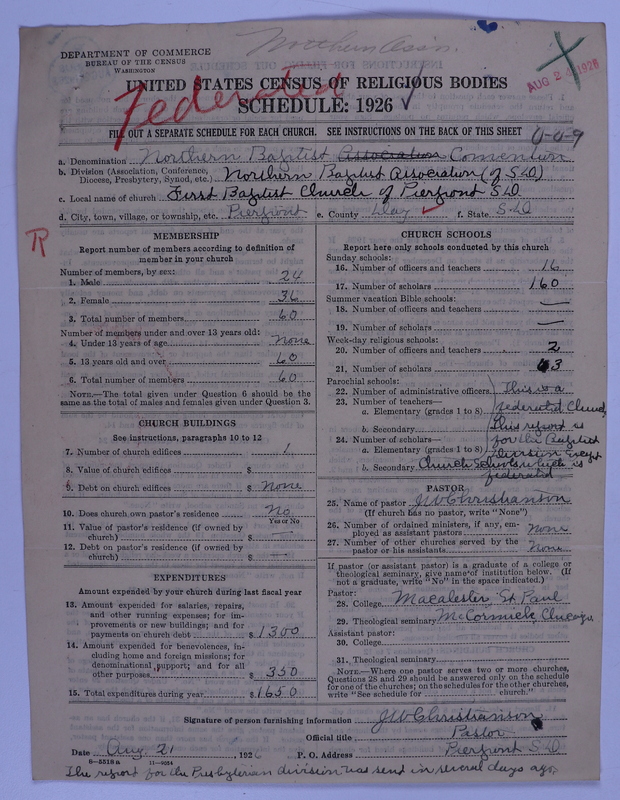 Northern Assn.
DEPARTMENT OF COMMERCE
BUREAU OF THE CENSUS
WASHINGTON
AUG 24 1926
UNITED STATES CENSUS OF RELIGIOUS BODIES
Federated
SCHEDULE: 1926
FILL OUT A SEPARATE SCHEDULE FOR EACH CHURCH. SEE INSTRUCTIONS ON THE BACK OF THIS SHEET
a. Denomination Northern Baptist Association Convention
b. Division (Association, Conference, Diocese, Presbytery, Synod, etc.) Northern Baptist Association (of S D)
c. Local name of church First Baptist Church of Pierpont S D
d. City, town, village, or township, etc. Pierpont e. County Day f. State S-D
MEMBERSHIP
Report number of members according to definition of
member in your church
Number of members, by sex:
1. Male 24
2. Female 36
3. Total number of members 60
Number of members under and over 13 years old:
4. Under 13 years of age none
5. 13 years old and over 60
6. Total number of members 60
NOTE.—The total given under Question 6 should be the
same as the total of males and females given under Question 3.
CHURCH BUILDINGS
See instructions, paragraphs 10 to 12
7. Number of church edifices 1
8. Value of church edifices $ —
9. Debt on church edifices $ None
10. Does church own pastor's residence No
Yes or No
11. Value of pastor's residence (if owned by
church) $ —
12. Debt on pastor's residence (if owned by
church) $ —
EXPENDITURES
Amount expended by your church during last fiscal year
13. Amount expended for salaries, repairs,
and other running expenses; for im-
provements or new buildings; and for
payments on church debt $ 1300
14. Amount expended for benevolences, in-
cluding home and foreign missions; for
denominational support; and for all
other purposes $ 350
15. Total expenditures during year $ 1650
CHURCH SCHOOLS
Report here only schools conducted by this church
Sunday schools:
16. Number of officers and teachers 16
17. Number of scholars 160
Summer vacation Bible schools:
18. Number of officers and teachers —
19. Number of scholars —
Week-day religious schools:
20. Number of officers and teachers 2
21. Number of scholars 63
Parochial schools:
22. Number of administrative officers
23. Number of teachers—
a. Elementary (grades 1 to 8)
b. Secondary
24. Number of scholars—
a. Elementary (grades 1 to 8)
b. Secondary
This is a
federated Church
This report is
for the Baptist
division except
Church Schools which is
federated
PASTOR
25. Name of pastor J W Christianson
(If church has no pastor, write "None")
26. Number of ordained ministers, if any, em-
ployed as assistant pastors None
27. Number of other churches served by the
pastor or his assistants None
If pastor (or assistant pastor) is a graduate of a college or
theological seminary, give name of institution below. (If
not a graduate, write "No" in the space indicated.)
Pastor:
28. College Macalester, St Paul
29. Theological seminary McCormick, Chicago
Assistant pastor:
30. College
31. Theological seminary
NOTE.—Where one pastor serves two or more churches,
Questions 28 and 29 should be answered only on the schedule
for one of the churches; on the schedules for the other churches,
write "See schedule for church."
Signature of person furnishing information J W Christianson
Official title Pastor
Date Aug. 21, 1926 P. O. Address Pierpont S D
8—5518a 11—9054
The report for the Presbyterian division was send in several days ago.